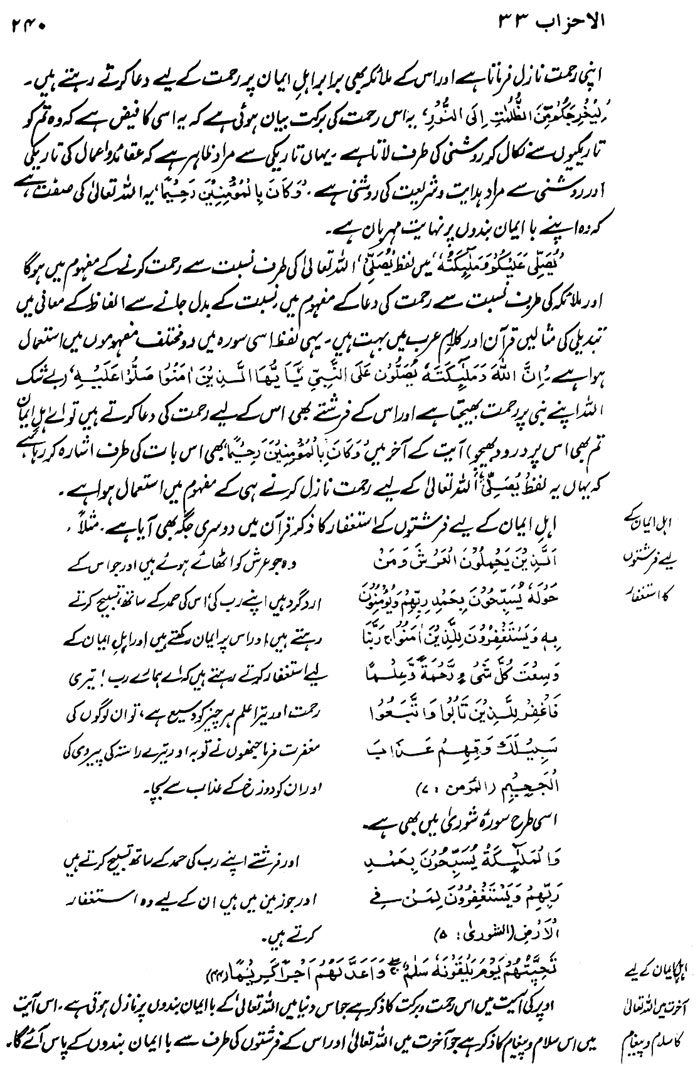 الاحزاب ۳۳
۲۴۰
اپنی رحمت نازل فرماتا ہے اور اس کے ملائکہ بھی برابر اہلِ ایمان پر رحمت کے لیے دعا کرتے رہتے ہیں۔
’لِیُخْرِجَکُمْ مِّنَ الظُّلُمٰتِ اِلَی النُّوْرِ‘ یہ اس رحمت کی برکت بیان ہوئی ہے کہ یہ اسی کا فیض ہے کہ وہ تم کو
تاریکیوں سے نکال کر روشنی کی طرف لاتا ہے۔ یہاں تاریکی سے مراد ظاہر ہے کہ عقائد و اعمال کی تاریکی
اور روشنی سے مراد ہدایت و شریعت کی روشنی ہے۔ ’وَکَانَ بِالْمُؤْمِنِیْنَ رَحِیْمًا‘ یہ اللہ تعالیٰ کی صفت ہے
کہ وہ اپنے با ایمان بندوں پر نہایت مہربان ہے۔
’یُصَلِّیْ عَلَیْکُمْ وَمَلٰٓئِکَتُہٗ‘ میں لفظ ’یُصَلِّیْ‘ اللہ تعالیٰ کی طرف نسبت سے رحمت کرنے کے مفہوم میں ہوگا
اور ملائکہ کی طرف نسبت سے رحمت کی دعا کے مفہوم میں۔ نسبت کے بدل جانے سے الفاظ کے معانی میں
تبدیلی کی مثالیں قرآن اور کلامِ عرب میں بہت ہیں۔ یہی لفظ اسی سورہ میں دو مختلف مفہوموں میں استعمال
ہوا ہے۔ ’اِنَّ اللّٰہَ وَمَلٰٓئِکَتَہٗ یُصَلُّوْنَ عَلَی النَّبِیِّ یٰٓاَیُّھَا الَّذِیْنَ اٰمَنُوْا صَلُّوْا عَلَیْہِ‘ (بے شک
اللہ اپنے نبی پر رحمت بھیجتا ہے اور اس کے فرشتے بھی اس کے لیے رحمت کی دعا کرتے ہیں تو اے اہلِ ایمان
تم بھی اس پر درود بھیجو) آیت کے آخر میں ’وَکَانَ بِالْمُؤْمِنِیْنَ رَحِیْمًا‘ بھی اس بات کی طرف اشارہ کر رہا ہے
کہ یہاں یہ لفظ ’یُصَلِّیْ‘ اللہ تعالیٰ کے لیے رحمت نازل کرنے ہی کے مفہوم میں استعمال ہوا ہے۔
اہل ایمان کے
لیے فرشتوں
کا استغفار
اہلِ ایمان کے لیے فرشتوں کے استغفار کا ذکر قرآن میں دوسری جگہ بھی آیا ہے۔ مثلاً
اَلَّذِیْنَ یَحْمِلُوْنَ الْعَرْشَ وَمَنْ
حَوْلَہٗ یُسَبِّحُوْنَ بِحَمْدِ رَبِّھِمْ وَیُؤْمِنُوْنَ
بِہٖ وَیَسْتَغْفِرُوْنَ لِلَّذِیْنَ اٰمَنُوْا رَبَّنَا
وَسِعْتَ کُلَّ شَیْءٍ رَّحْمَۃً وَّعِلْمًا
فَاغْفِرْ لِلَّذِیْنَ تَابُوْا وَاتَّبَعُوْا
سَبِیْلَکَ وَقِھِمْ عَذَابَ
الْجَحِیْمِ (المؤمن : ۷)
وہ جو عرش کو اٹھائے ہوئے ہیں اور جو اس کے
اردگرد ہیں اپنے رب کی، اس کی حمد کے ساتھ، تسبیح کرتے
رہتے ہیں اور اس پر ایمان رکھتے ہیں اور اہلِ ایمان کے
لیے استغفار کرتے رہتے ہیں کہ اے ہمارے رب! تیری
رحمت اور تیرا علم ہر چیز کو وسیع ہے، تو ان لوگوں کی
مغفرت فرما جنھوں نے توبہ اور تیرے راستہ کی پیروی کی
اور ان کو دوزخ کے عذاب سے بچا۔
اسی طرح سورۂ شوریٰ میں بھی ہے۔
وَالْمَلٰٓئِکَۃُ یُسَبِّحُوْنَ بِحَمْدِ
رَبِّھِمْ وَیَسْتَغْفِرُوْنَ لِمَنْ فِی
الْاَرْضِ (الشوریٰ: ۵)
اور فرشتے اپنے رب کی حمد کے ساتھ تسبیح کرتے ہیں
اور جو زمین میں ہیں ان کے لیے وہ استغفار
کرتے ہیں۔
تَحِیَّتُھُمْ یَوْمَ یَلْقَوْنَہٗ سَلٰمٌ ۚ وَاَعَدَّ لَھُمْ اَجْرًا کَرِیْمًا (۴۴)
اہل ایمان کے لیے
آخرت میں اللہ تعالیٰ
کا سلام و پیغام
اوپر کی آیت میں اس رحمت و برکت کا ذکر ہے جو اس دنیا میں اللہ تعالیٰ کے با ایمان بندوں پر نازل ہوتی ہے۔ اس آیت
میں اس سلام و پیغام کا ذکر ہے جو آخرت میں اللہ تعالیٰ اور اس کے فرشتوں کی طرف سے با ایمان بندوں کے پاس آئے گا۔